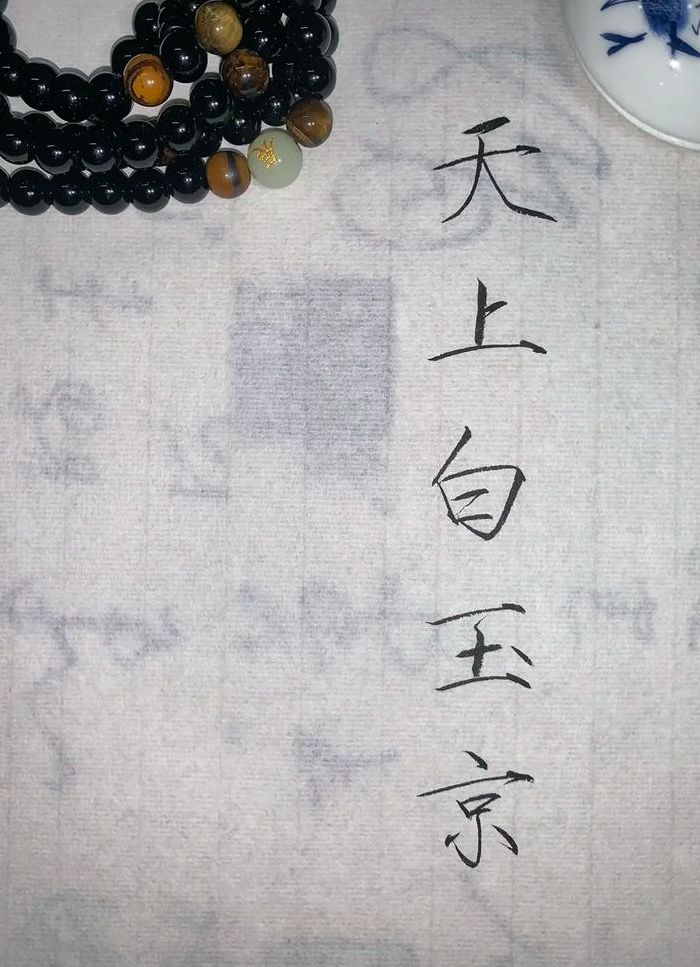 天上白玉京